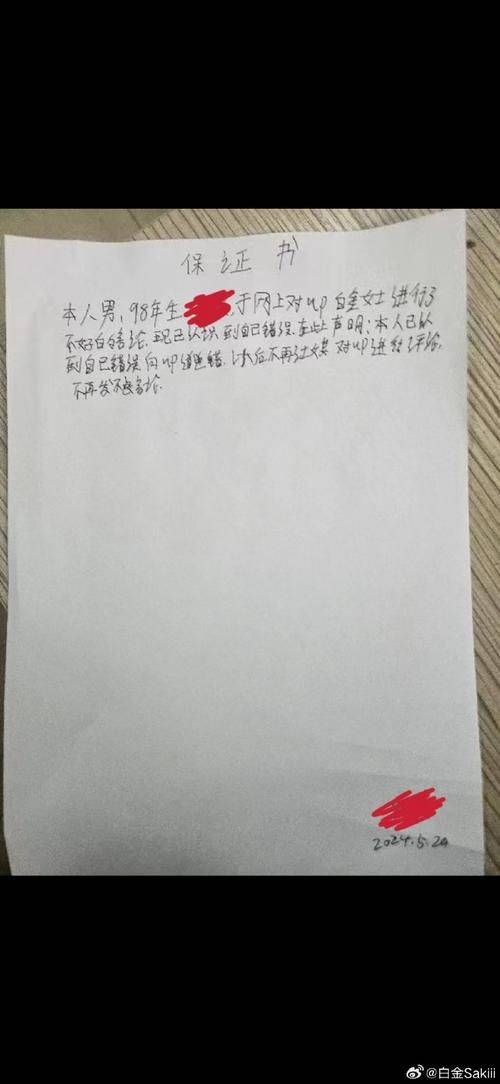 保证书
本人男,98年生 ,于网上对up白金女士进行了
不好的言论,现已认识到自己错误,在此声明:本人已认
到自己错误向up道歉,以后不再社媒对up进行评论,
不再发不良言论.
2024.5.24
@白金Sakiii